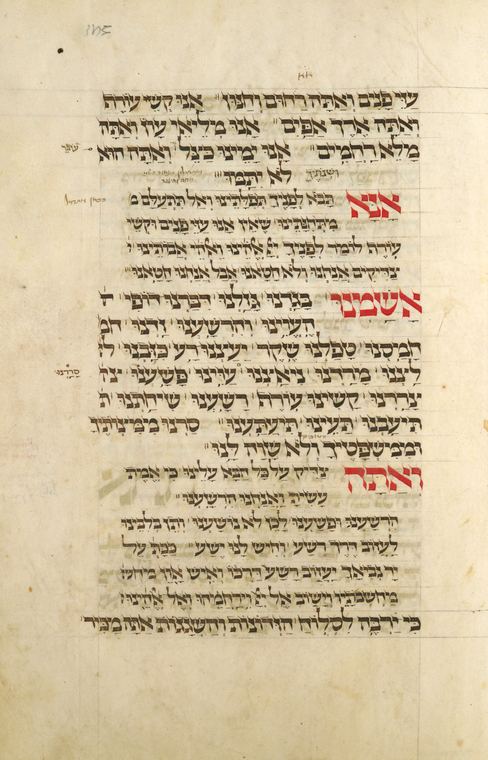 עזי פנים ואתה רחום וחנון אנו קשי עורף
ואתה ארך אפים אנו מליאי עון ואתה
מלא רחמים אנו ימינו כצל ואתה הוא
ושנותיך לא יתמו
אנא תבא לפניך תפלתינו ואל תתעלם מ
מתחנתינו שאין אנו עזי פנים וקשי
עורף לומר לפניך אלהינו ואלהי אבותינו
צדיקים אנחנו ולא חטאנו אבל אנחנו חטאנו
אשמנו בגדנו גזלנו דברנו דופי ה
העוינו והרשענו זדנו חמ
חמסנו טפלנו שקר יעצנו רע כזבנו ל
לצנו מרדנו ניאצנו עוינו פשענו צר
צררנו קשינו עורף רשענו שיחתנו ת
תיעבנו תעינו תיעתענו סרנו ממצותיך
וממשפטיך ולא שוה לנו
ואתה צדיק על כל הבא עלינו כי אמת
עשית ואנחנו הרשענו
הרשענו ופשענו לכן לא נושענו ותן בלבינו
לעזוב דרך רשע וחיש לנו ישע ככת על
יד נביאך יעזוב רשע דרכו ואיש און מחש
מחשבותיו וישוב אל ײ וירחמהו ואל אלהינו
כי ירבה לסלוח הזדונות והשגגות אתה מכיר
סררנו